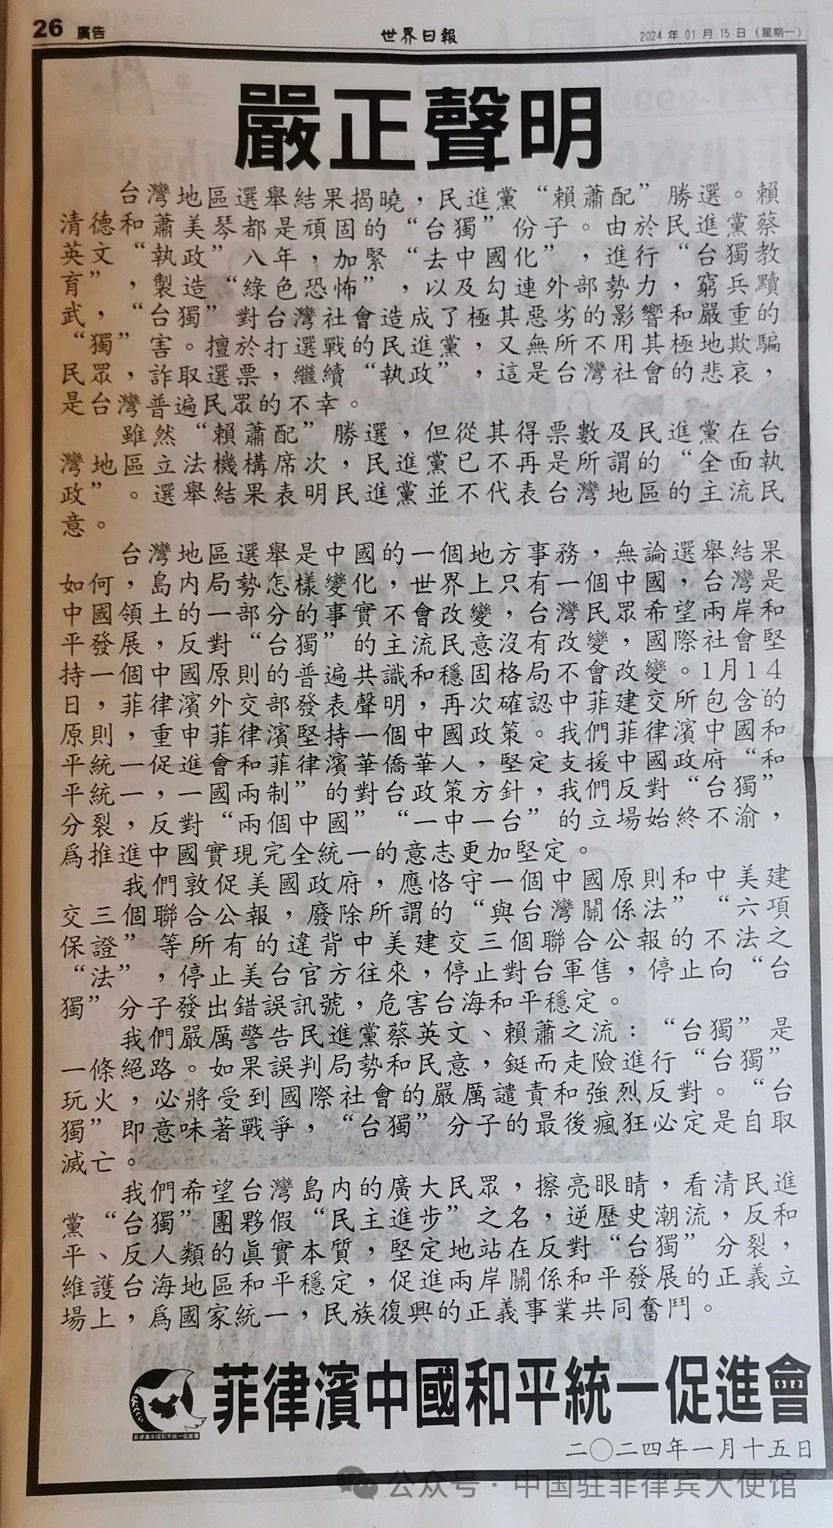 26 廣告
世界日報
2024 年 01 月 15 日（星期一）
嚴正聲明
台灣地區選舉結果揭曉，民進黨“賴蕭配”勝選。賴
清德和蕭美琴都是頑固的“台獨”份子。由於民進黨蔡
英文“執政”八年，加緊“去中國化”，進行“台獨教
育”，製造“綠色恐怖”，以及勾連外部勢力，窮兵黷
武，“台獨”對台灣社會造成了極其惡劣的影響和嚴重的
“獨”害。擅於打選戰的民進黨，又無所不用其極地欺騙
民眾，詐取選票，繼續“執政”，這是台灣社會的悲哀，
是台灣普遍民眾的不幸。
雖然“賴蕭配”勝選，但從其得票數及民進黨在台
灣地區立法機構席次，民進黨已不再是所謂的“全面執
政”。選舉結果表明民進黨並不代表台灣地區的主流民
意。
台灣地區選舉是中國的一個地方事務，無論選舉結果
如何，島內局勢怎樣變化，世界上只有一個中國，台灣是
中國領土的一部分的事實不會改變，台灣民眾希望兩岸和
平發展，反對“台獨”的主流民意沒有改變，國際社會堅
持一個中國原則的普遍共識和穩固格局不會改變。1月14
日，菲律濱外交部發表聲明，再次確認中菲建交所包含的
原則，重申菲律濱堅持一個中國政策。我們菲律濱中國和
平統一促進會和菲律濱華僑華人，堅定支援中國政府“和
平統一，一國兩制”的對台政策方針，我們反對“台獨”
分裂，反對“兩個中國”“一中一台”的立場始終不渝，
爲推進中國實現完全統一的意志更加堅定。
我們敦促美國政府，應恪守一個中國原則和中美建
交三個聯合公報，廢除所謂的“與台灣關係法”“六項
保證”等所有的違背中美建交三個聯合公報的不法之
“法”，停止美台官方往來，停止對台軍售，停止向“台
獨”分子發出錯誤訊號，危害台海和平穩定。
我們嚴厲警告民進黨蔡英文、賴蕭之流：“台獨”是
一條絕路。如果誤判局勢和民意，鋌而走險進行“台獨”
玩火，必將受到國際社會的嚴厲譴責和強烈反對。“台
獨”即意味著戰爭，“台獨”分子的最後瘋狂必定是自取
滅亡。
我們希望台灣島內的廣大民眾，擦亮眼睛，看清民進
黨“台獨”團夥假“民主進步”之名，逆歷史潮流，反和
平、反人類的眞實本質，堅定地站在反對“台獨”分裂，
維護台海地區和平穩定，促進兩岸關係和平發展的正義立
場上，爲國家統一，民族復興的正義事業共同奮鬥。
菲律濱中國和平統一促進會
菲律濱中國和平統一促進會
二〇二四年一月十五日
公众号 · 中国驻菲律宾大使馆